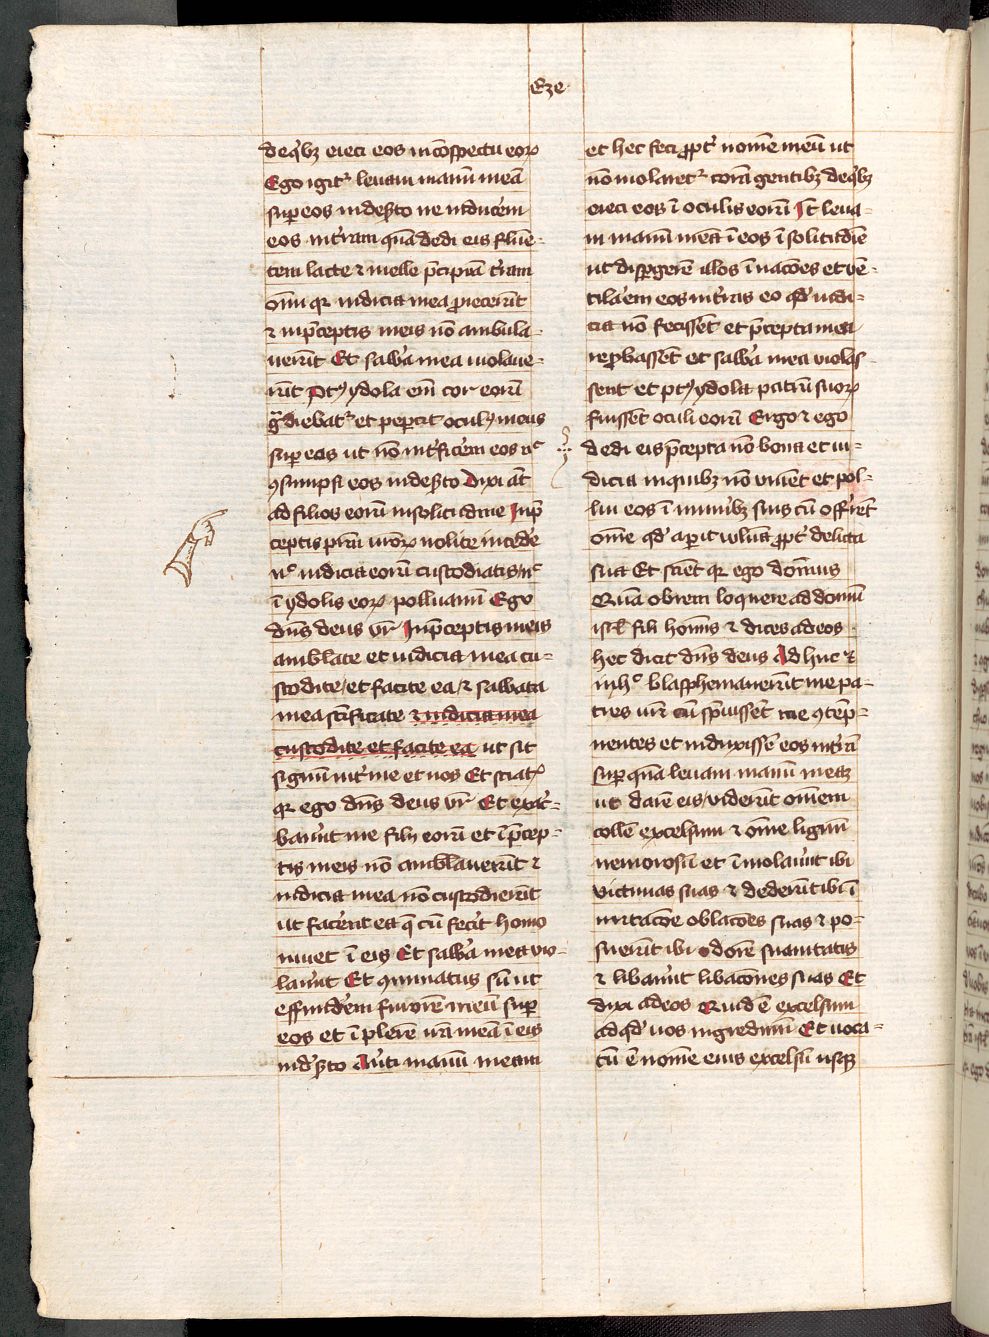 Eze
deq̄bꝫ eieci eos in cōspectu eoꝝ
Ego igit᷑ leuaui manū meā
suꝑ eos in deẜto ne inducēm
eos in t̄ram quā dedi eis fluē-
tem lacte ⁊ melle p̄cipuā t̄rarū
oīm qꝛ iudicia mea ꝓiecerūt
⁊ in p̄ceptis meis nō ambula-
uerūt Et sabb̄a mea uiolaue-
rūt Ptꝰ ydola em̄ cor eorū
g̊diebat᷑ et peꝑcit oculꝰ meus
suꝑ eos ut nō int̄ficēm eos nͨ
ꝯsumpsi eos in deẜto Dixi aūt
ad filios eorū in solitudine In p̄
ceptis patrū uroꝝ nolite incedē
nͨ iudicia eorū custodiatis / nͨ
ī ydolis eoꝝ polluamī Ego
dn̄s deus vr̄ In p̄ceptis meis
amblate et iudicia mea cu-
stodite / et facite ea / ⁊ sabbata
mea sc̄ificate ⁊ iudicia mea
custodite et facite ea ut sit
signū int̄ me et uos Et sciat᷑
qꝛ ego dn̄s deus vr̄ Et exac̄-
bauūt me filij eorū et ī p̄cep-
tis meis nō amblauerūt ⁊
iudicia mea nō custodierūt
ut facēnt ea q̄ cū fecīt homo
uiuet ī eis Et sabb̄a mea uio-
lauūt Et ꝯminatus sū ut
effundēm furorē meū suꝑ
eos et īplerē irā meā ī eis
in deẜto Au̓ti manū meam
et hec feci ꝓpt̄ nomē meū ut
nō uiolaret᷑ corā gentibꝫ de q̄bꝫ
eieci eos ī oculis eorū It̄ leua-
ui manū meā ī eos ī solitudīe
ut disꝑgerē illos ī nacōes et vē-
tilaēm eos in t̄ras eo qd̓ iudi-
cia nō fecissēt et p̄cepta mea
reꝓbassēt et sabb̄a mea violas-
sent et ptꝰ ydola patrū suoꝝ
fuissēt oculi eorū Ergo ⁊ ego
dedi eis p̄cepta nō bona et iu-
dicia in quibꝫ nō viuēt et pol-
lui eos ī munībꝫ suis cū offerēt
om̄e qd̓ aꝑit vuluā ꝓpt̄ delicta
sua Et sciēt qꝛ ego dominus
Quā obrem loquere ad domū
isrl̄ fili homīs ⁊ dices ad eos
hec dicit dn̄s deus Adhuc ⁊
in hͨ blasphemauerūt me pa-
tres urī cū sp̄uissēt me ꝯtēp-
nentes et induxissē eos in t̄rā
suꝑ quā leuaui manū meaꝫ
ut darē eis / viderūt om̄em
collē excelsum ⁊ om̄e lignū
nemorosū et īmolauūt ibi
victimas suas ⁊ dederūt ibi ī
iritacōe oblacōes suas ⁊ po-
suerūt ibi odorē suauitatis
⁊ libauūt libacōnes suas Et
dixi ad eos Quid ē excelsum
ad qd̓ uos ingredimī Et uoca-
tū ē nomē eius excelsū usqꝫ